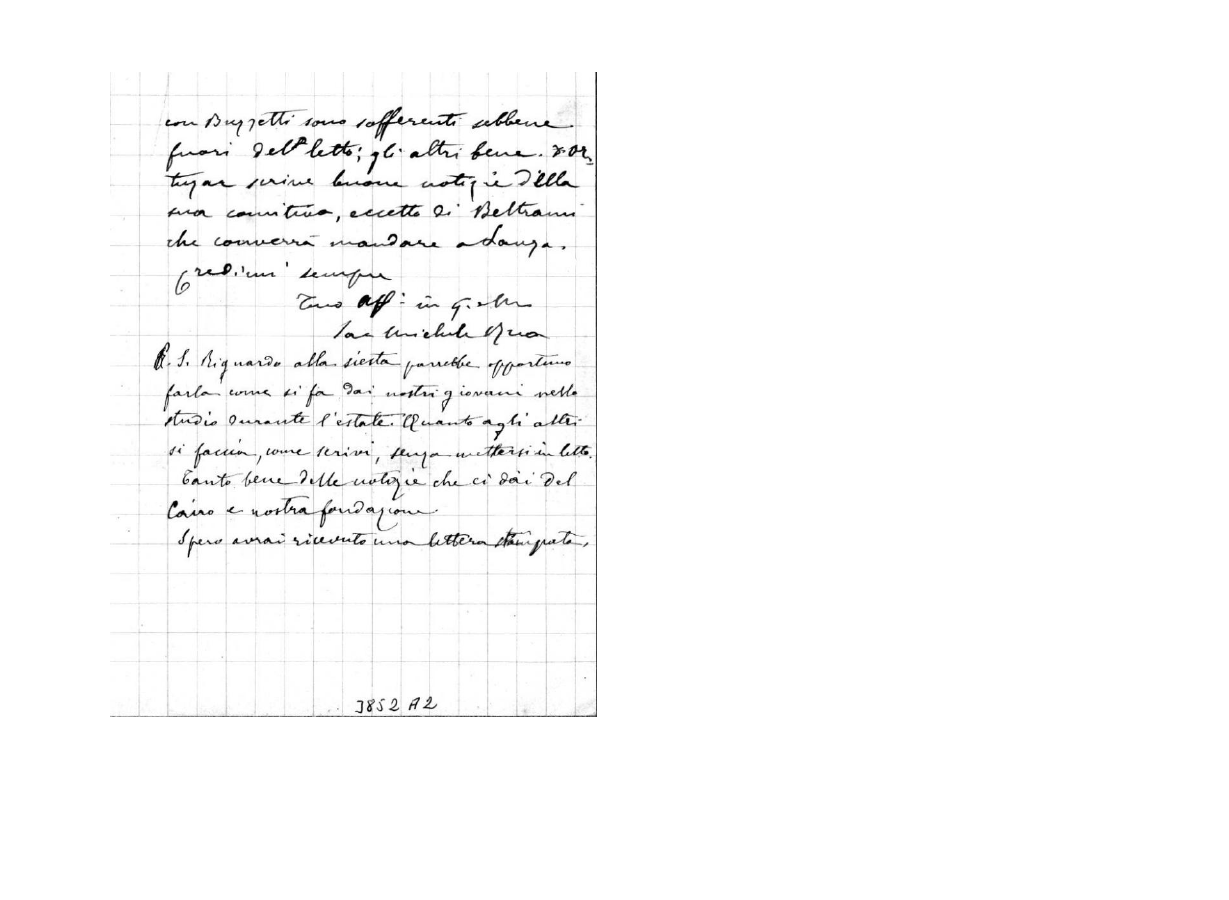 con Buzzetti sono sofferenti sebbene
fuori del letto; gli altri bene. D. Or
tuzar scrive buone notizie della
sua comitiva, eccetto di Beltrami
che converrà mandare a Lanzo.
Credimi sempre
Tuo aff: in G. e M.
Sac Michele Rua
P. S. Riguardo alla siesta parrebbe opportuno
farla come si fa dai nostri giovani nello
studio durante l'estate. Quanto agli altri
si faccia, come scrivi, senza mettersi in letto.
Tanto bene delle notizie che ci dai del
Cairo e nostra fondazione
Spero avrai ricevuto una lettera stampata.
3852 A2